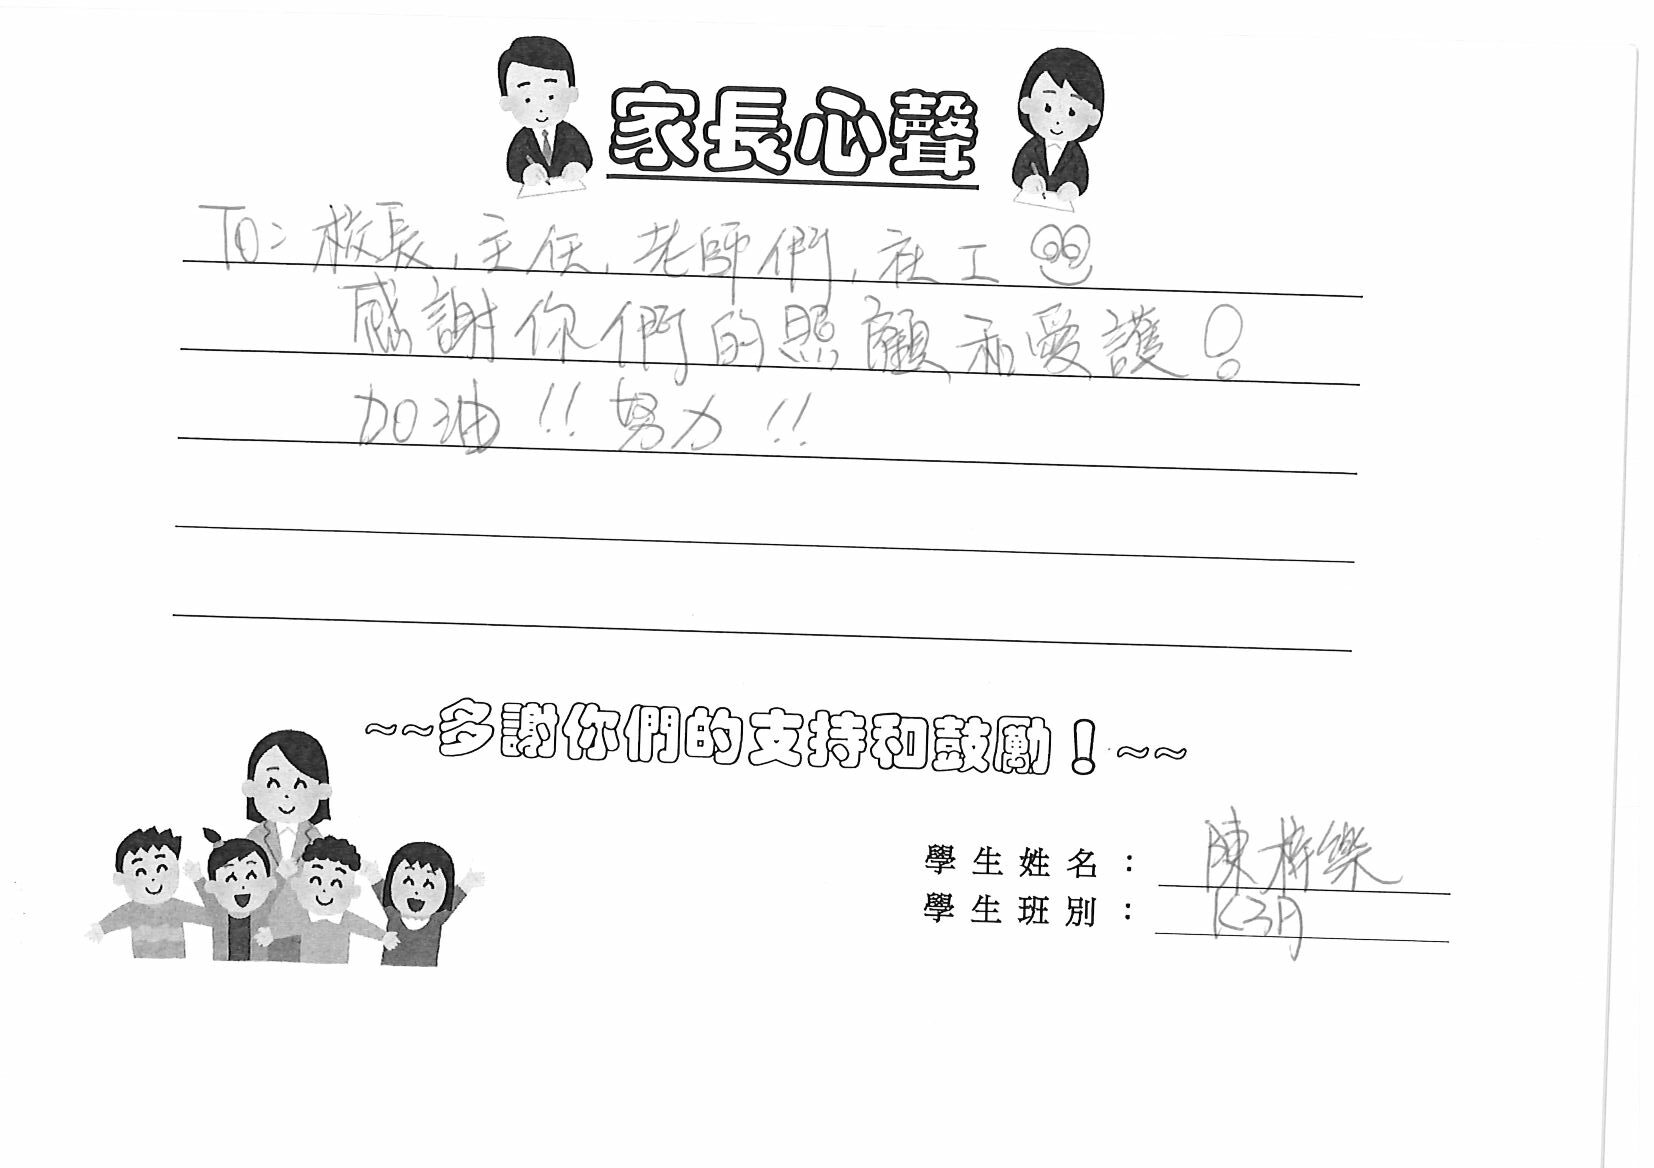 家長心聲
TO：校長，主任，老師們，社工
感謝你們的照顧和愛護！
加油！！努力！！
~~多謝你們的支持和鼓勵！~~
學生姓名：陳梓樂
學生班別：K3月